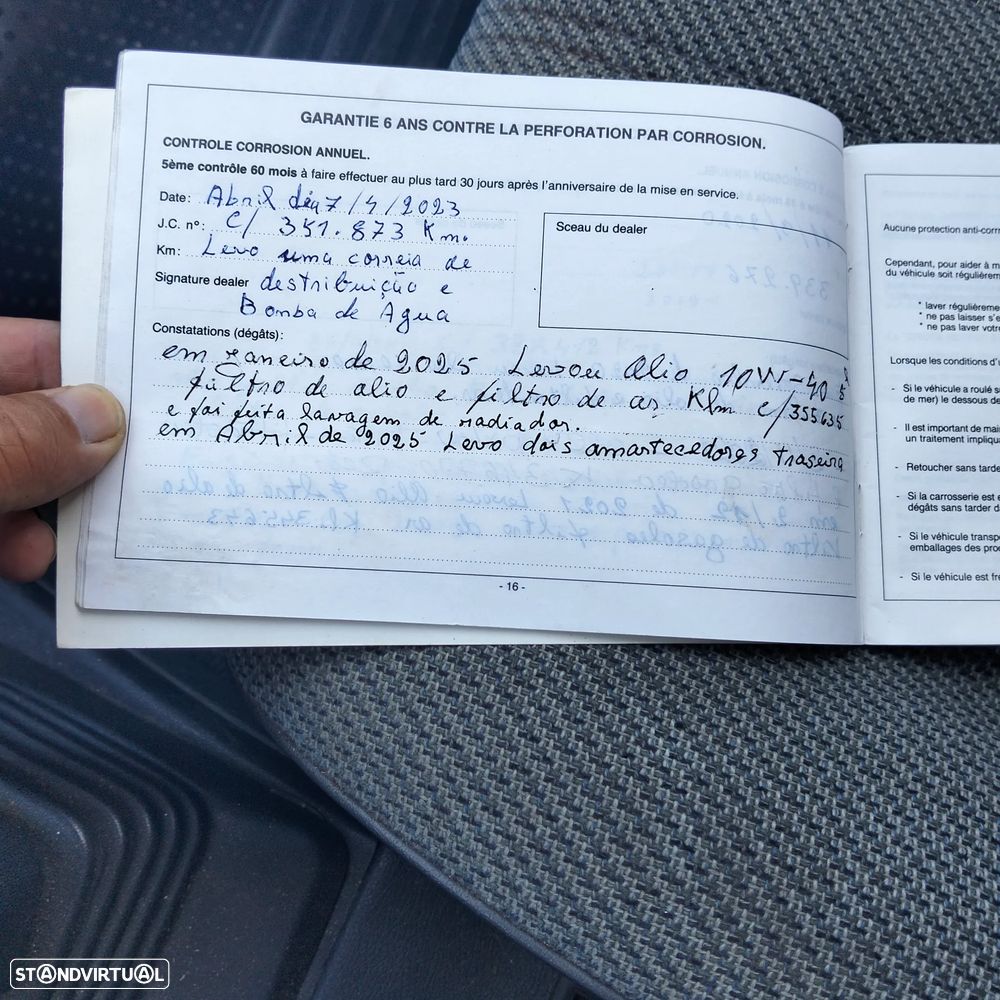 GARANTIE 6 ANS CONTRE LA PERFORATION PAR CORROSION.
CONTROLE CORROSION ANNUEL.
5ème contrôle 60 mois à faire effectuer au plus tard 30 jours après l'anniversaire de la mise en service.
Date: Abril dia 7/4/2023
J.C. n°: c/ 351.873 Km.
Km: Levo uma correia de
Signature dealer destribuição e
Bomba de Agua
Sceau du dealer
Constatations (dégâts):
em Janeiro de 2025 Levou alio 10W-40
filtro de alio e filtro de ar Klm c/355635
e foi feita lavagem de radiador.
em Abril de 2025 Levo dois amartecedores traseira
- 16 -
Aucune protection anti-corr
Cependant, pour aider à m
du véhicule soit régulièrem
* laver régulièreme
* ne pas laisser s'e
* ne pas laver votre
Lorsque les conditions d'
- Si le véhicule a roulé s
de mer) le dessous de
- Il est important de mai
un traitement impliqua
- Retoucher sans tarde
- Si la carrosserie est e
dégâts sans tarder d
- Si le véhicule transpo
emballages des proc
- Si le véhicule est fré
STANDVIRTUAL